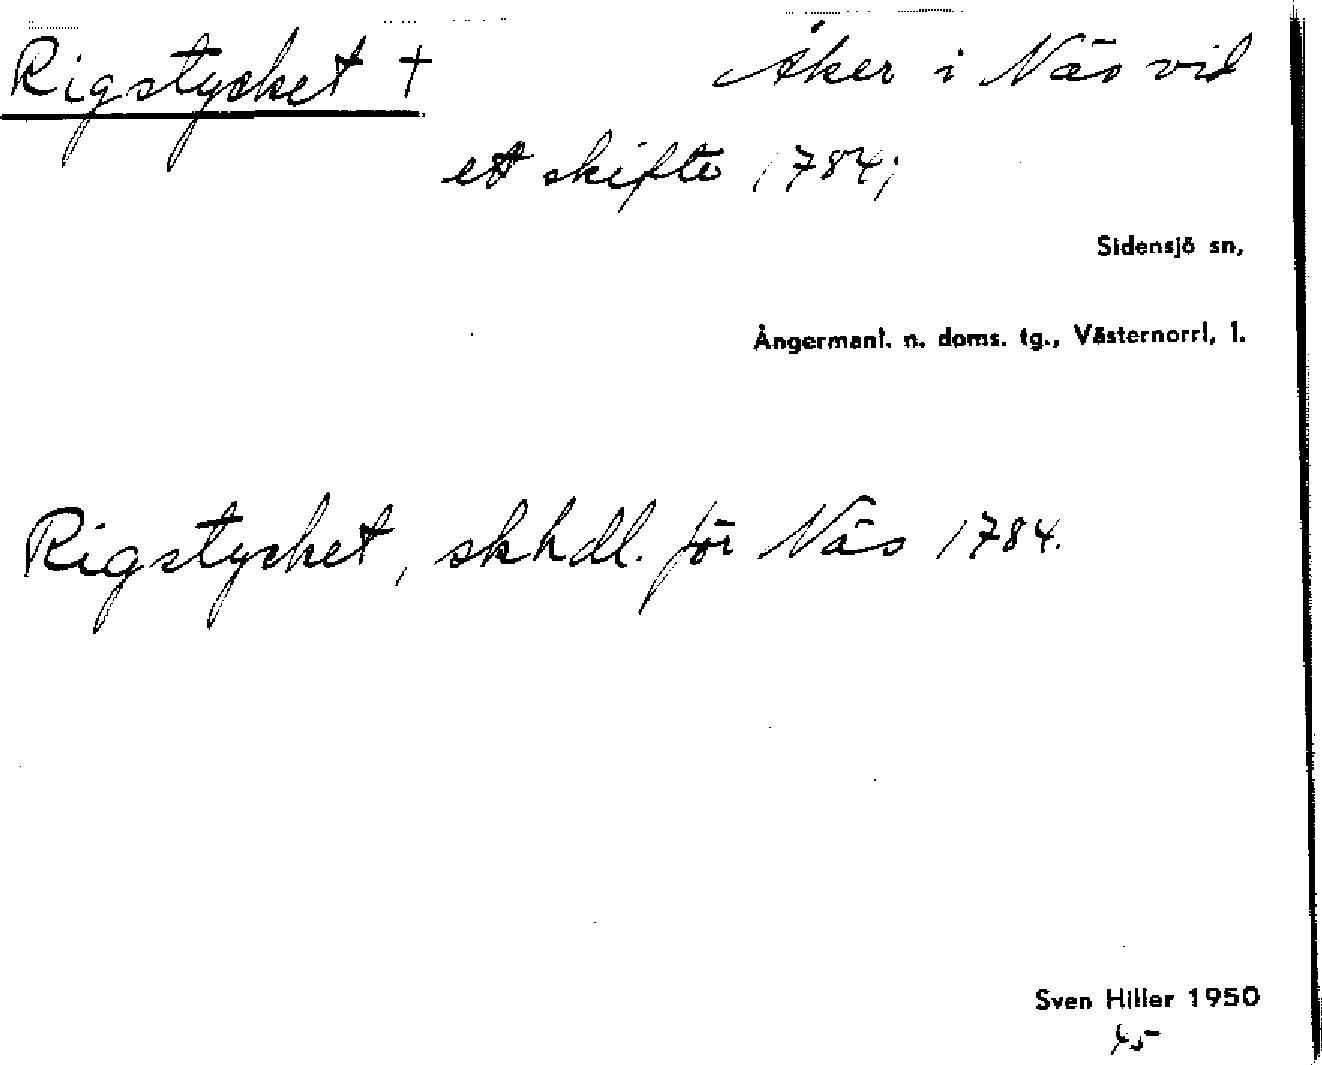 Rigstycket † Åker i Näs vid
ett skifte 1784;
Sidensjö sn,
Ångermanl. n. doms. tg., Västernorrl, l.
Rigstycket, skhdl. för Näs 1784.
Sven Hiller 1950